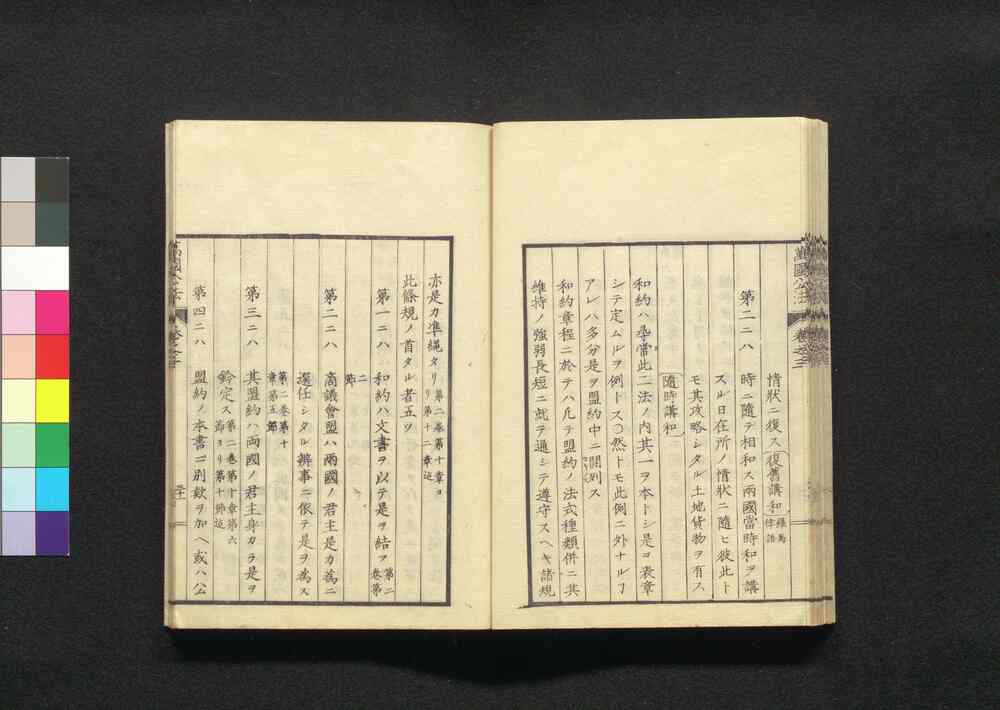 情狀ニ復ス復舊講和羅馬律語
第二ニハ 時ニ隨テ相和ス兩國當時和ヲ講
スル日在所ノ情狀ニ隨ヒ彼此ト
モ其攻略シタル土地貨物ヲ有ス
隨時講和
和約ハ尋常此二法ノ内其一ヲ本トシ是ヲ表章
シテ定ムルヲ例トス〇然トモ此例ニ外ナルヿ
アレハ多分是ヲ盟約中ニ開列ス
和約章程ニ於テハ凡テ盟約ノ法式種類併ニ其
維持ノ強弱長短ニ就テ通シテ遵守スヘキ諸規
萬國公法
卷之三
亦是カ準繩タリ第二卷第十章ヨリ第十二章迠
此條規ノ首タル者五ツ
第一ニハ 和約ハ文書ヲ以テ是ヲ結フ第二卷第
二節
第二ニハ 商議會盟ハ兩國ノ君主是カ爲ニ
選任シタル辨事ニ依テ是ヲ爲ス
第二卷第十章第五節
第三ニハ 其盟約ハ兩國ノ君主身カラ是ヲ
鈐定ス第二卷第十章第六節ヨリ第十節迠
第四ニハ 盟約ノ本書ニ別款ヲ加ヘ或ハ公
萬國公法
卷之三